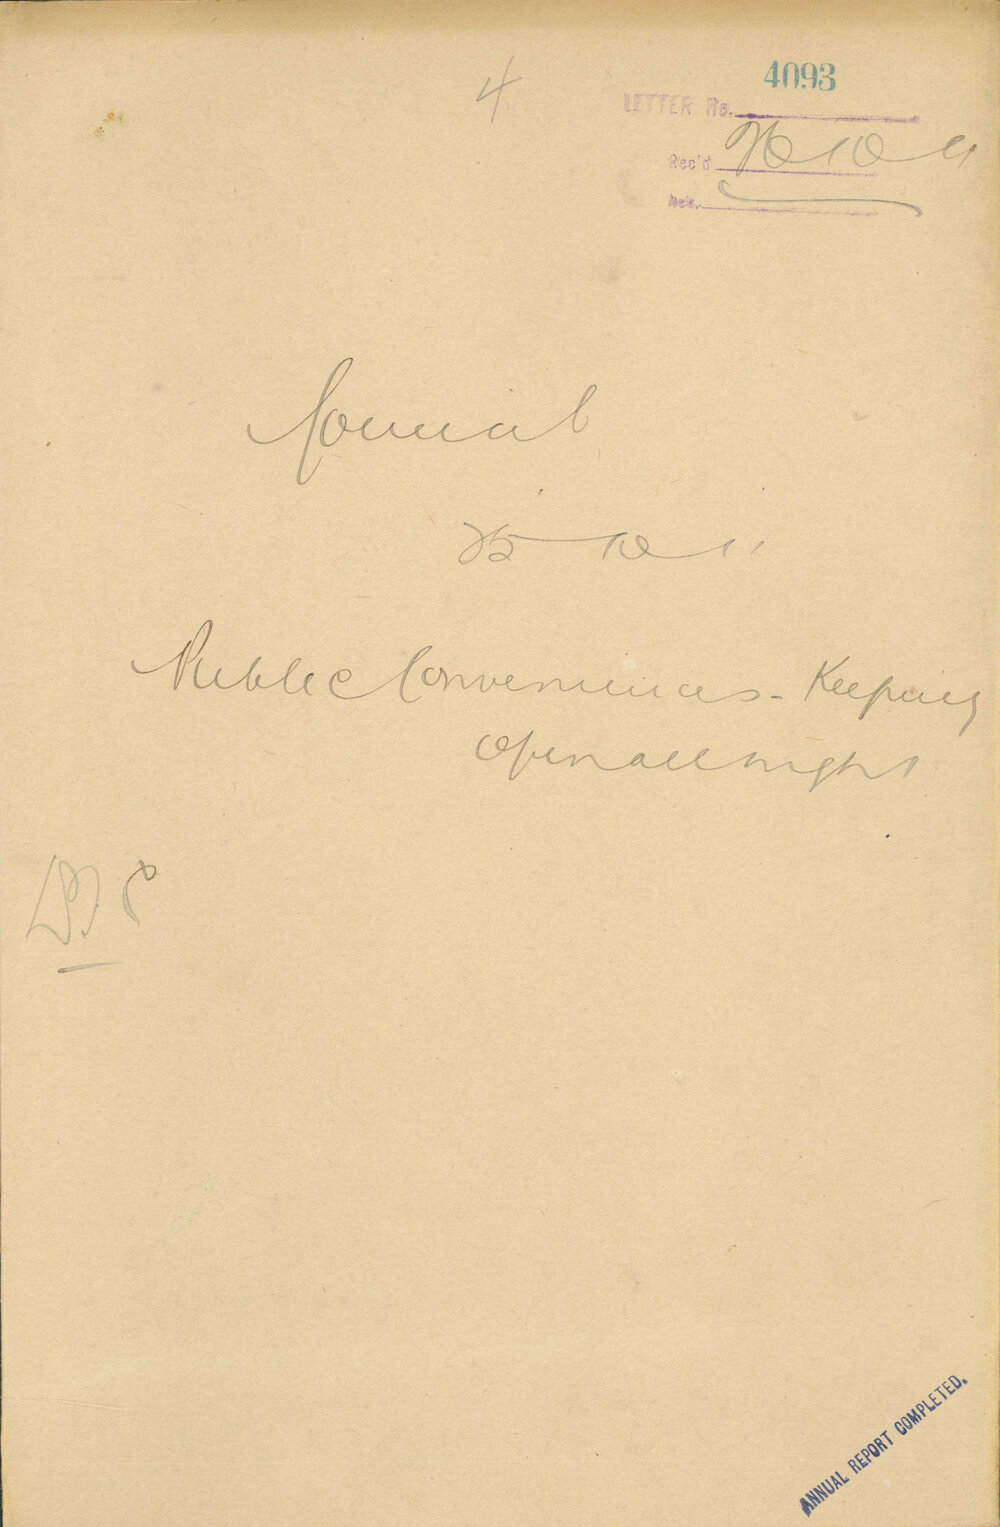 4.
4093
LETTER No.
Rec'd 26 10 11
Ack.
Council
25 10 11
Public Conveniences - Keeping
open all night
ANNUAL REPORT COMPLETED.